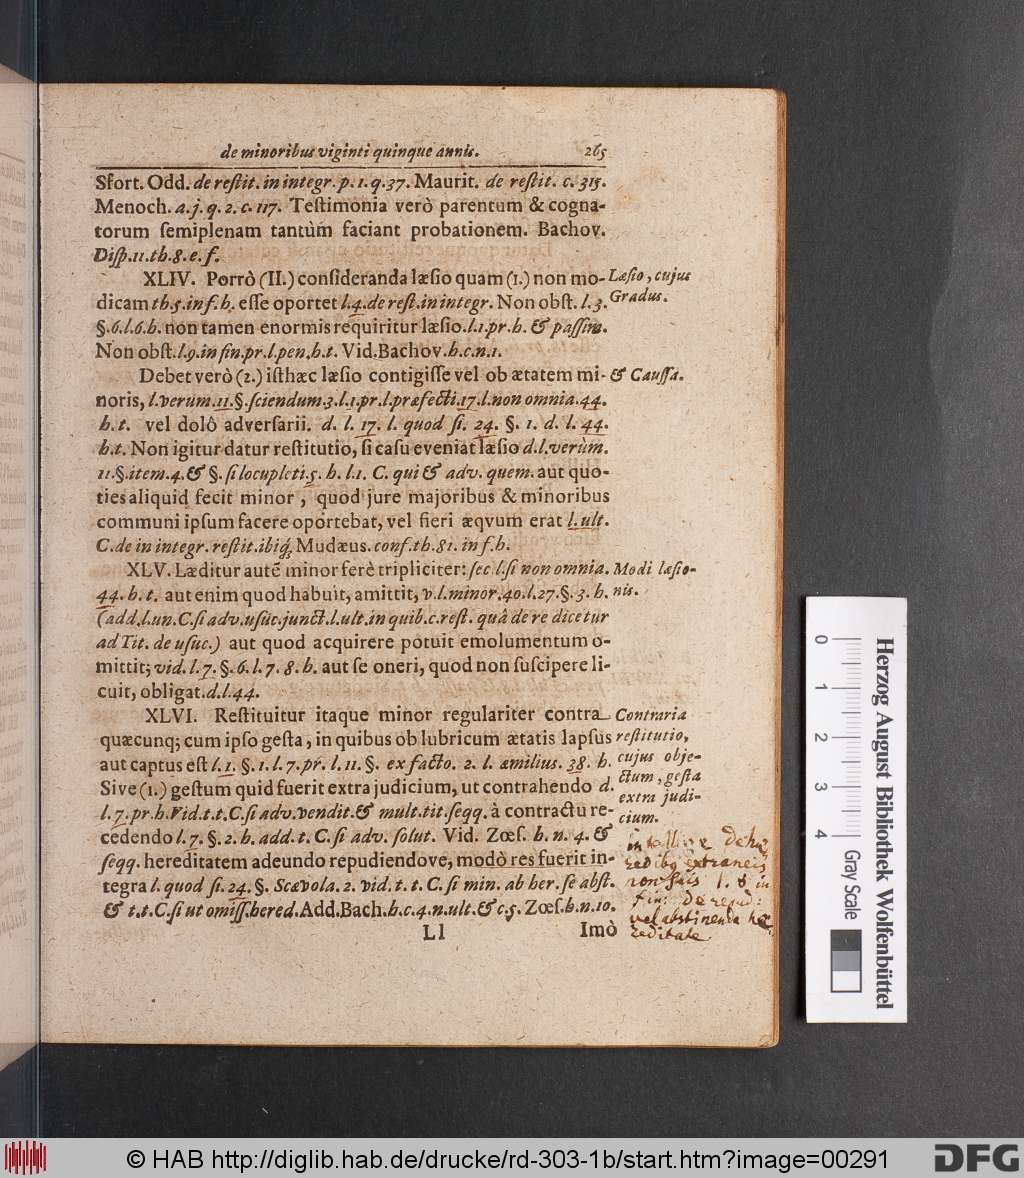 de minoribus viginti quinque annis. 265
Sfort. Odd. de restit. in integr. p. 1. q. 37. Maurit. de restit. c. 315.
Menoch. a. j. q. 2. c. 117. Testimonia verò parentum & cogna-
torum semiplenam tantùm faciant probationem. Bachov.
Disp. 11. th. 8. e. f.
XLIV. Porrò (II.) consideranda læsio quam (1.) non mo-
dicam th. 5. inf. h. esse oportet l. 4. de rest. in integr. Non obst. l. 3.
§. 6. l. 6. h. non tamen enormis requiritur læsio. l. 1. pr. h. & passim.
Non obst. l. 9. in fin. pr. l. pen. h. t. Vid. Bachov. h. c. n. 1.
Læsio, cujus
Gradus.
Debet verò (2.) isthæc læsio contigisse vel ob ætatem mi-
noris, l. verum. 11. §. sciendum. 3. l. 1. pr. l. præfecti. 17. l. non omnia. 44.
h. t. vel dolô adversarii. d. l. 17. l. quod si. 24. §. 1. d. l. 44.
h. t. Non igitur datur restitutio, si casu eveniat læsio d. l. verùm.
11. §. item. 4. & §. si locupleti. 5. h. l. 1. C. qui & adv. quem. aut quo-
ties aliquid fecit minor, quod jure majoribus & minoribus
communi ipsum facere oportebat, vel fieri æqvum erat l. ult.
C. de in integr. restit. ibiq; Mudæus. conf. th. 81. in f. h.
& Caussa.
XLV. Læditur autē minor ferè tripliciter: sec l. si non omnia.
44. h. t. aut enim quod habuit, amittit, v. l. minor. 40. l. 27. §. 3. h.
(add. l. un. C. si adv. usuc. junct. l. ult. in quib. c. rest. quâ de re dicetur
ad Tit. de usuc.) aut quod acquirere potuit emolumentum o-
mittit; vid. l. 7. §. 6. l. 7. 8. h. aut se oneri, quod non suscipere li-
cuit, obligat. d. l. 44.
Modi læsio-
nis.
XLVI. Restituitur itaque minor regulariter contra
quæcunq; cum ipso gesta, in quibus ob lubricum ætatis lapsus
aut captus est l. 1. §. 1. l. 7. pr. l. 11. §. ex facto. 2. l. æmilius. 38. h.
Sive (1.) gestum quid fuerit extra judicium, ut contrahendo d.
l. 7. pr. h. Vid. t. t. C. si adv. vendit. & mult. tit. seqq. à contractu re-
cedendo l. 7. §. 2. h. add. t. C. si adv. solut. Vid. Zœs. h. n. 4. &
seqq. hereditatem adeundo repudiendove, modò res fuerit in-
tegra l. quod si. 24. §. Scævola. 2. vid. t. t. C. si min. ab her. se abst.
& t. t. C. si ut omiss. hered. Add. Bach. h. c. 4. n. ult. & c. 5. Zœs. h. n. 10.
Contraria
restitutio,
cujus obje-
ctum, gesta
extra judi-
cium.
intellige de hæ
redibs extraneis
non suis l. 8 in
fin: de repud:
vel abstinenda hæ
reditate.
Ll Imò
0
1
2
3
4
Gray Scale
Herzog August Bibliothek Wolfenbüttel
© HAB http://diglib.hab.de/drucke/rd-303-1b/start.htm?image=00291
DFG